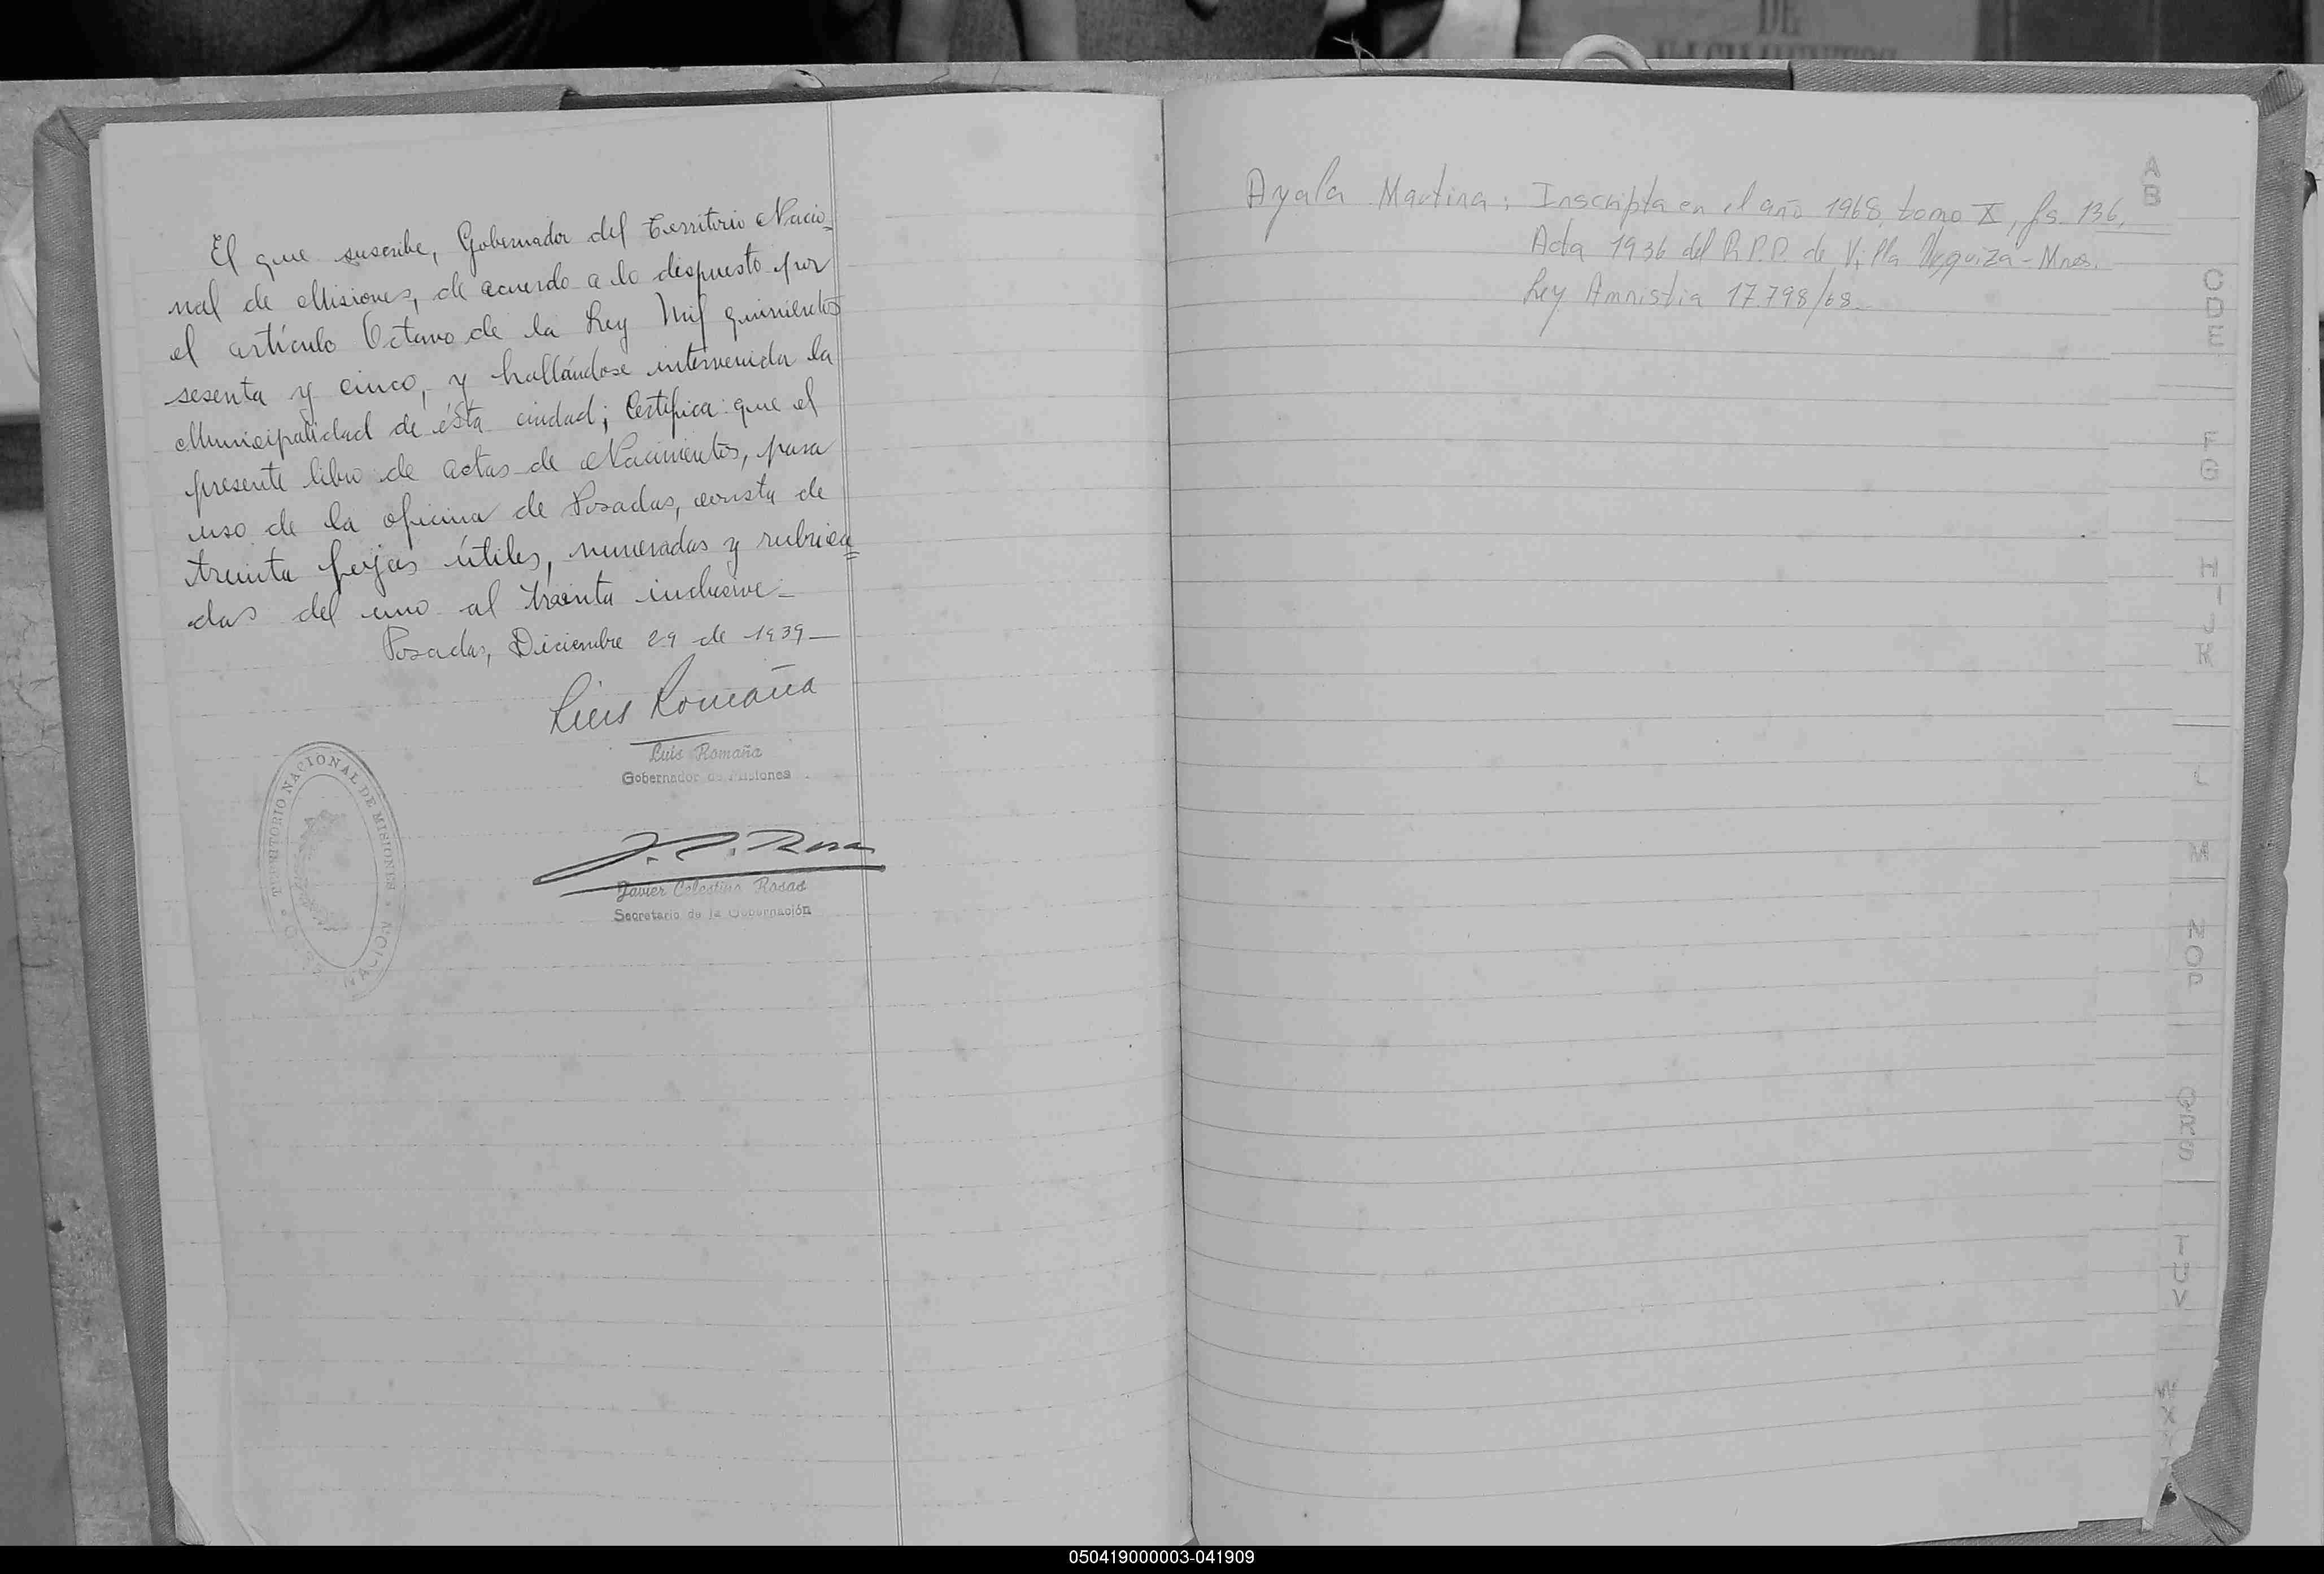 DE
El que suscribe, Gobernador del Territorio Nacio=
nal de Misiones, de acuerdo a lo dispuesto por
el artículo Octavo de la Ley Mil quinientos
sesenta y cinco, y hallándose intervenida la
Municipalidad de ésta ciudad; Certifica: que el
presente libro de actas de Nacimientos, para
uso de la oficina de Posadas, consta de
treinta fojas útiles, numeradas y rubrica=
das del uno al treinta inclusive._
Posadas, Diciembre 29 de 1939_
Luis Romaña
Luis Romaña
Gobernador de Misiones
TERRITORIO NACIONAL DE MISIONES
J. C. Rosas
Javier Celestino Rosas
Secretario de la Gobernación
Ayala Martina: Inscripta en el año 1968, tomo X, fs. 136,
Acta 1936 del R.P.P. de Villa Urquiza - Mnes.
Ley Amnistia 17.798/68_
A
B
C
D
E
F
G
H
I
J
K
L
M
N
O
P
Q
R
S
T
U
V
W
X
050419000003-041909